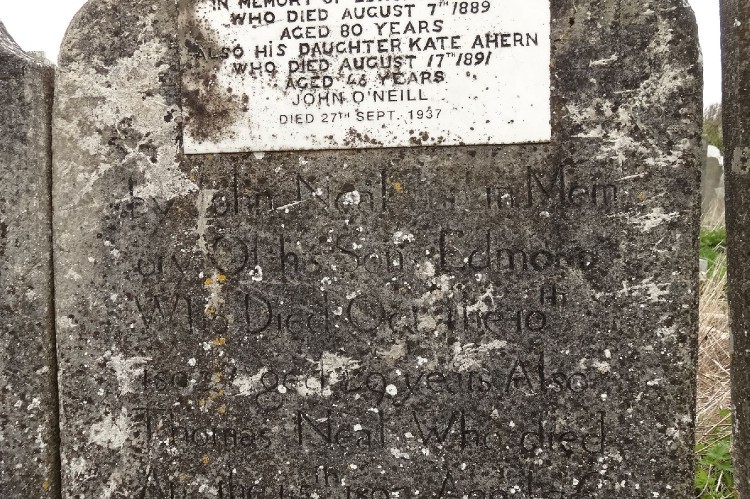 IN MEMORY OF
WHO DIED AUGUST 7TH 1889
AGED 80 YEARS
ALSO HIS DAUGHTER KATE AHERN
WHO DIED AUGUST 17TH 1891
AGED 46 YEARS
JOHN O'NEILL
DIED 27TH SEPT. 1937
by John Neal in Mem
ory Of his Son Edmond
Who Died Oct the 10th
aged 29 years Also
Thomas Neal Who died
the